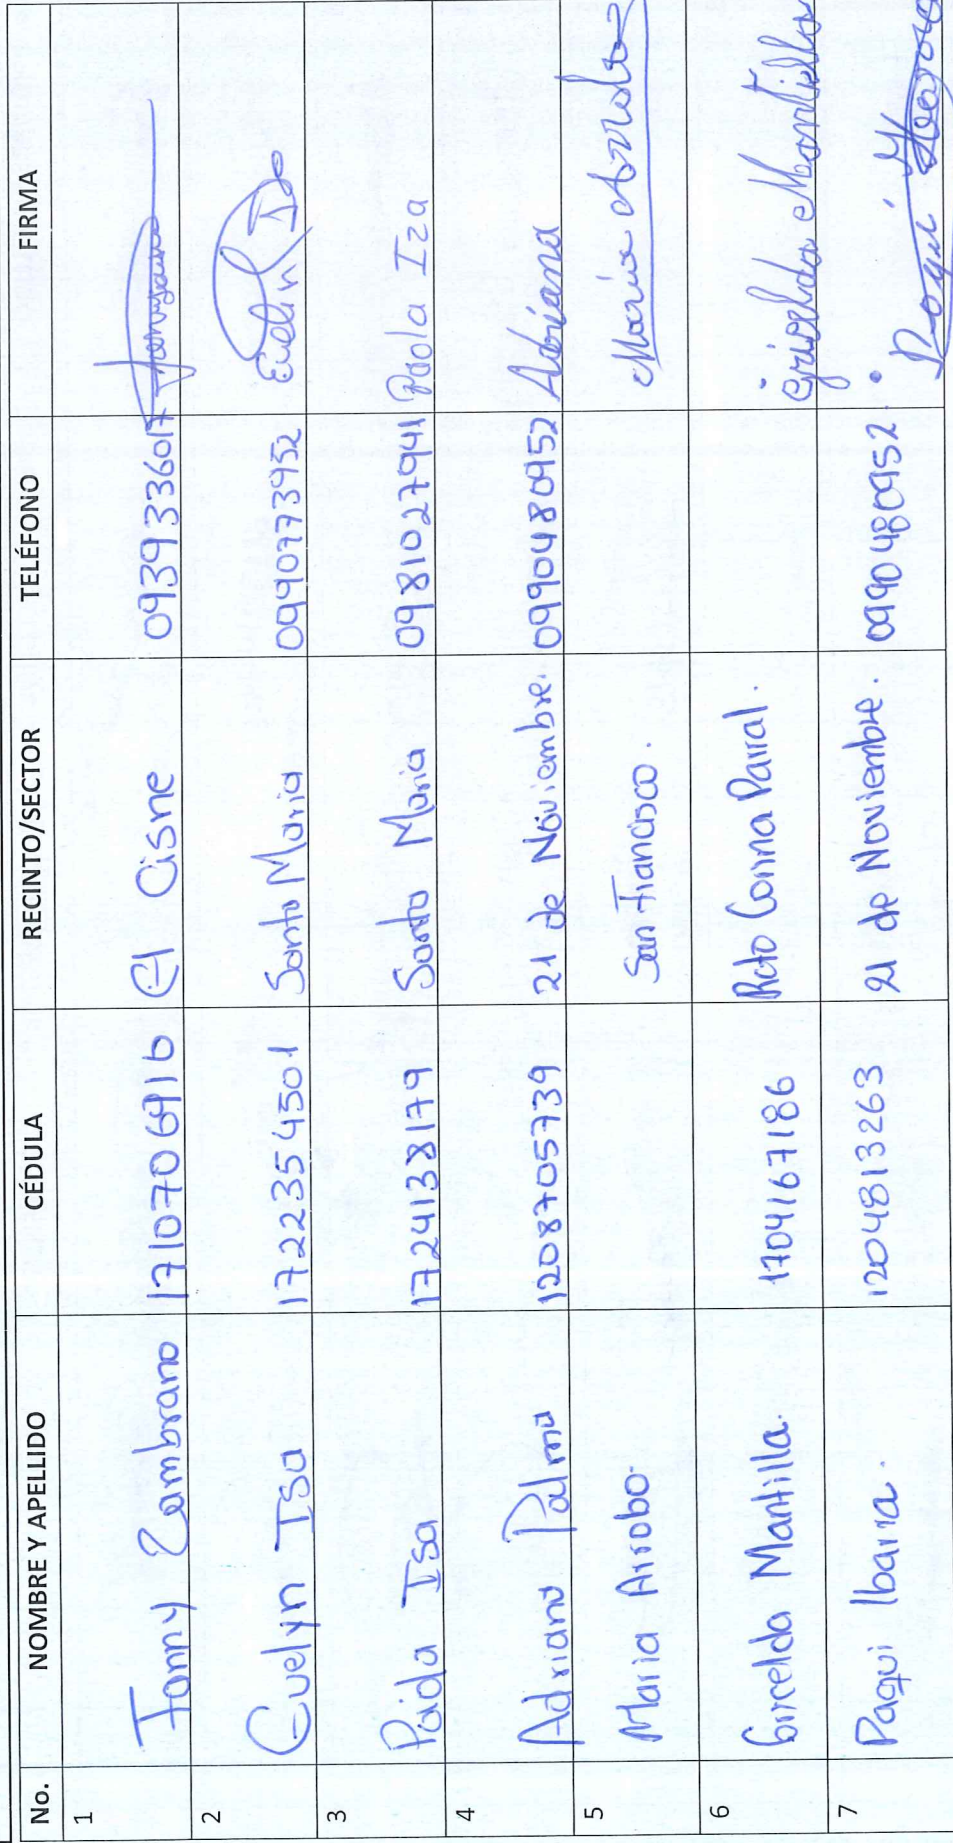 No. NOMBRE Y APELLIDO CÉDULA RECINTO/SECTOR TELÉFONO FIRMA
1 Fanny Zambrano 1710706916 El Cisne 0939336017
2 Evelyn Isa 1722354501 Santa Maria 0990773952 Evelin Iza
3 Paola Isa 1724138179 Santa Maria 0981027941 Paola Iza
4 Adriana Palma 1208705739 21 de Noviembre. 0990480952 Adriana
5 Maria Arrobo San Francisco. Maria Arrobo
6 Gricelda Mantilla. 1704167186 Rcto Corina Parral. Griselda Mantilla
7 Paqui Ibarra. 1204813263 21 de Noviembre. 0990480952.